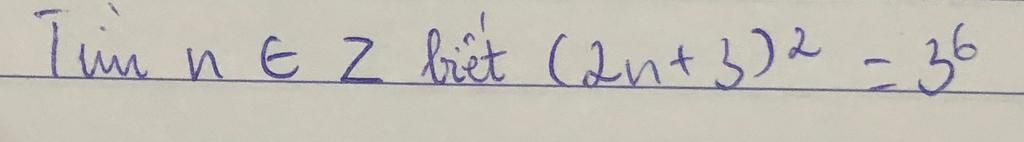 Tìm n ∈ Z biết (2n+3)² = 3⁶